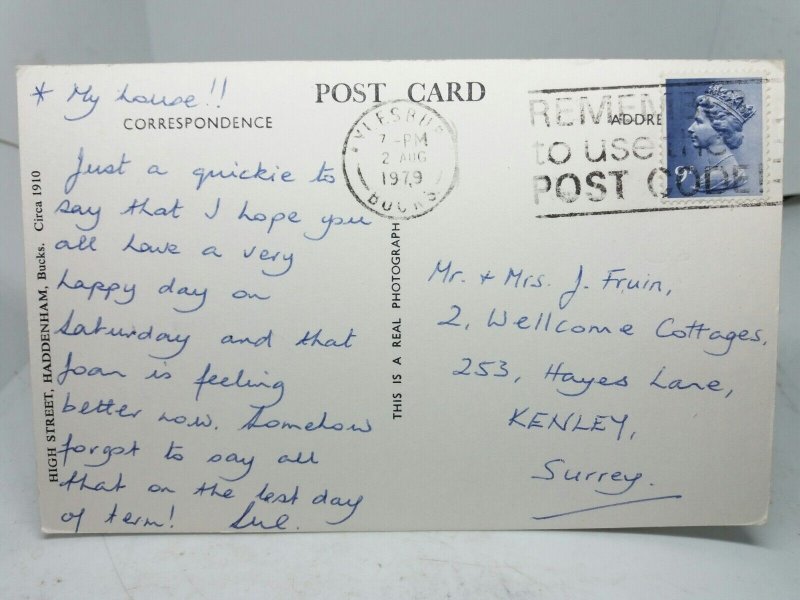 * My house!!
POST CARD
CORRESPONDENCE
ADDRE
AYLESBU
7-PM
2 AUG
1979
BUCKS
REMEM
to use the
POST CODE
9P
Just a quickie to
say that I hope you
all have a very
happy day on
Saturday and that
Joan is feeling
better now. Somehow
forgot to say all
that on the last day
of term! Sue.
HIGH STREET, HADDENHAM, Bucks. Circa 1910
THIS IS A REAL PHOTOGRAPH
Mr. + Mrs. J. Fruin,
2, Wellcome Cottages,
253, Hayes Lane,
KENLEY,
Surrey.